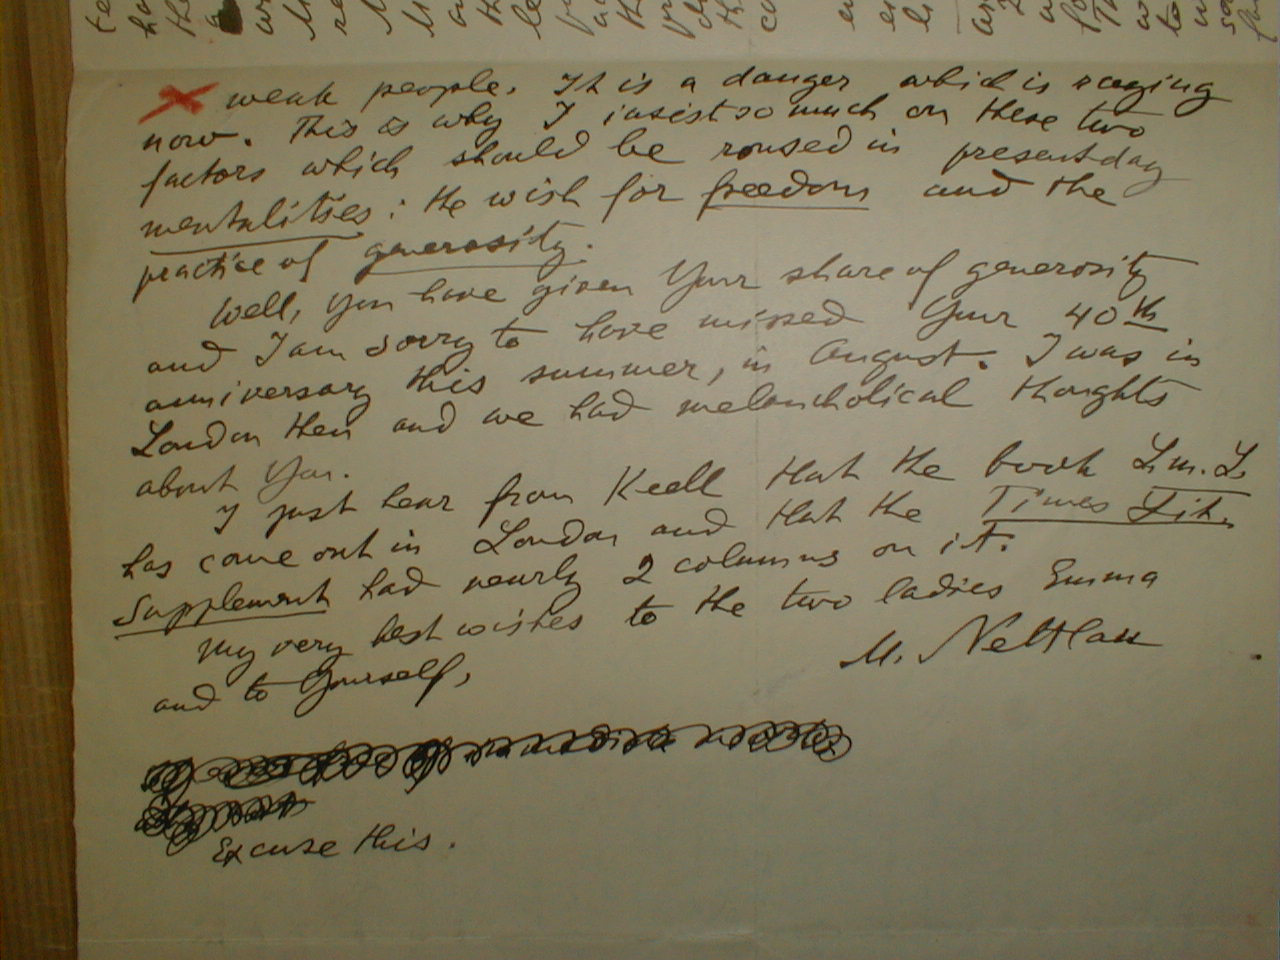 weak people. It is a danger which is raging
now. This is why I insist so much on these two
factors which should be roused in present day
mentalities: the wish for freedom and the
practice of generosity.
Well, you have given your share of generosity
and I am sorry to have missed your 40th
anniversary this summer, in August. I was in
London then and we had melancholical thoughts
about you.
I just hear from Keell that the book L.m.L.
has come out in London and that the Times Lit.
Supplement had nearly 2 columns on it.
My very best wishes to the two ladies Emma
and to yourself,
M. Nettlau
Excuse this.